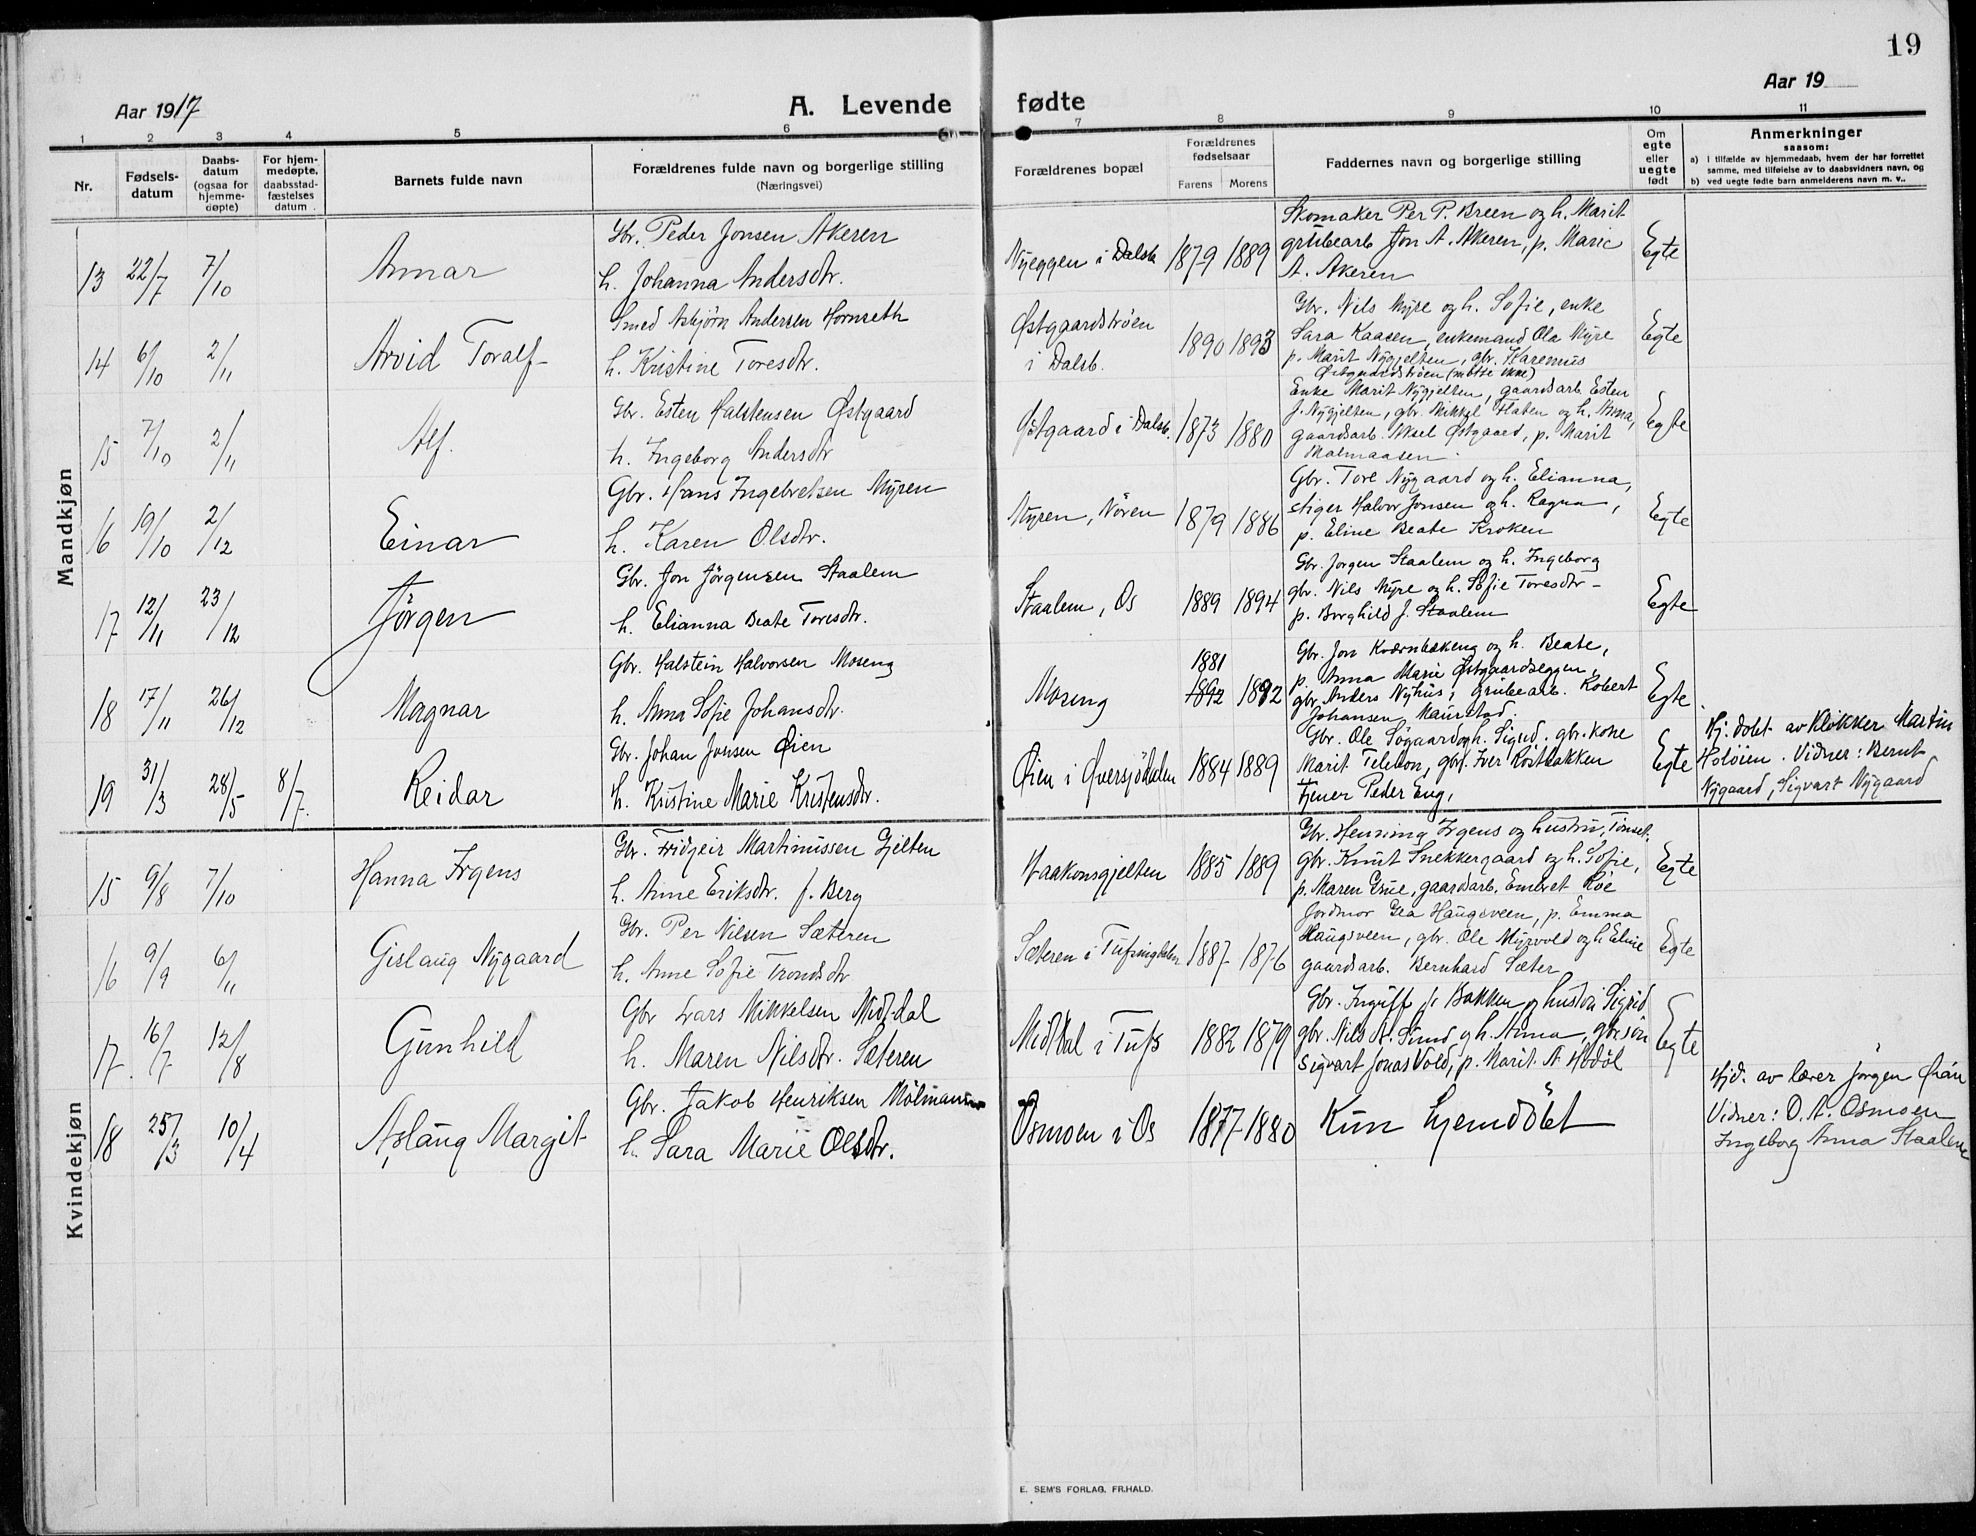 19
Aar 1917
A. Levende fødte
Aar 19
1 2 3 4 5 6 7 8 9 10 11
Nr.
Fødsels-
datum
Daabs-
datum
(ogsaa for
hjemme-
døpte)
For hjem-
medøpte,
daabsstad-
fæstelses
datum
Barnets fulde navn
Forældrenes fulde navn og borgerlige stilling
(Næringsvei)
Forældrenes bopæl
Forældrenes
fødselsaar
Farens Morens
Faddernes navn og borgerlige stilling
Om
egte
eller
uegte
født
Anmerkninger
saasom:
a) I tilfælde av hjemmedaab, hvem der har forrettet
samme, med tilføielse av to daabsvidners navn, og
b) ved uegte fødte barn anmelderens navn m. v..
Mandkjøn
13 22/7 7/10 Annar
Gbr. Peder Jonsen Akeren
h. Johanna Andersdtr.
Nyeggen i Dalsb. 1879 1889
Skomaker Per P. Breen og h. Marit
grubearb Jon A. Akeren, p. Marie
A. Akeren
Egte
14 6/10 2/11 Arvid Toralf
Smed Asbjørn Andersen Hornseth
h. Kristine Toresdtr.
Østgaardstrøen
i Dalsb. 1890 1893
Gbr. Nils Myre og h. Sofie, enke
Sara Kaasen, enkemand Ola Myre
p. Marit Nygjelten, gbr. Karenus
Østgaardstrøen (møtte ikke)
Egte
15 7/10 2/11 Alf.
Gbr. Esten Halstensen Østgaard
h. Ingeborg Andersdtr
Østgaard i Dalsb. 1873 1880
Enke Marit Nygjelten, gaardsarb. Esten
J. Nygjelten, gbr. Mikkel Flaten og h. Anna,
gaardsarb. Aksel Østgaard, p. Marit
Malmaasen.
Egte
16 19/10 2/12 Einar
Gbr. Hans Ingebretsen Myren
h. Karen Olsdtr.
Myren, Nøren 1879 1886
Gbr. Tore Nygaard og h. Elianna,
stiger Halvor Jonsen og h. Ragna,
p. Eline Beate Kroken
Egte
17 12/11 23/12 Jørgen
Gbr. Jon Jørgensen Staalem
h. Elianna Beate Toresdtr.
Staalem, Os 1889 1894
Gbr. Jørgen Staalem og h. Ingeborg
gbr. Nils Myre og h. Sofie Toresdtr -
p. Borghild J. Staalem
Egte
18 17/11 26/12 Magnar
Gbr. Halstein Halvorsen Moseng
h. Anna Sofie Johansdtr.
Moseng 1881 1892 1892
Gbr. Jon Kværnbækeng og h. Beate,
p. Anna Marie Østgaardseggen,
gbr. Anders Nyhus, grubearb. Robert
Johansen Maurstad.
Egte
19 31/3 28/5 8/7 Reidar
Gbr. Johan Jonsen Øien
h. Kristine Marie Kristensdtr.
Øien i Øversjødalen 1884 1889
Gbr. Ole Søgaard og h. Sigrid, gbr. kone
Marit Telebon, gbr. Iver Røstbakken
tjener Peder Eng,
Egte
Hj. døbt av Klokker Martin
Holøien. Vidner: Bernt
Nygaard, Sigvart Nygaard
Kvindekjøn
15 9/8 7/10 Hanna Irgens
Gbr. Fridgeir Martinussen Gjelten
h. Anne Eriksdtr. f. Berg
Haakonsgjelten 1885 1889
Gbr. Henning Irgens og hustru, Tønset,
gbr. Knut Snekkergaard og h. Sofie,
p. Maren Grue, gaardsarb. Embret Røe
Egte
16 9/9 6/11 Gislaug Nygaard
Gbr. Per Nilsen Sæteren
h. Anne Sofie Trondsdtr
Sæteren i Tufsingdalen 1887 1876
Jordmor Gea Haugsveen, p. Emma
Haugsveen, gbr. Ole Myrvold og h Eline
gaardsarb. Bernhard Sæter
Egte
17. 16/7 12/8 Gunhild
Gbr Lars Mikkelsen Midtdal
h. Maren Nilsdtr. Sæteren
Midtdal i Tufs 1882 1879
Gbr. Ingulf P. Bakken og hustru Sigrid
gbr. Nils A. Sund og h. Anna, gbr. søn
Sigvart Jonas Vold, p. Marit A Hodøl
Egte
18 25/3 10/4 Aslaug Margit
Gbr. Jakob Henriksen Mølmann
h. Sara Marie Olsdtr.
Osmoen i Os 1877 1880
Kun hjemdøbt
Hjd. av lærer Jørgen
Vidner: O. A. Osmoen
Ingeborg Anna Staalem
E. SEM'S FORLAG, FR.HALD.